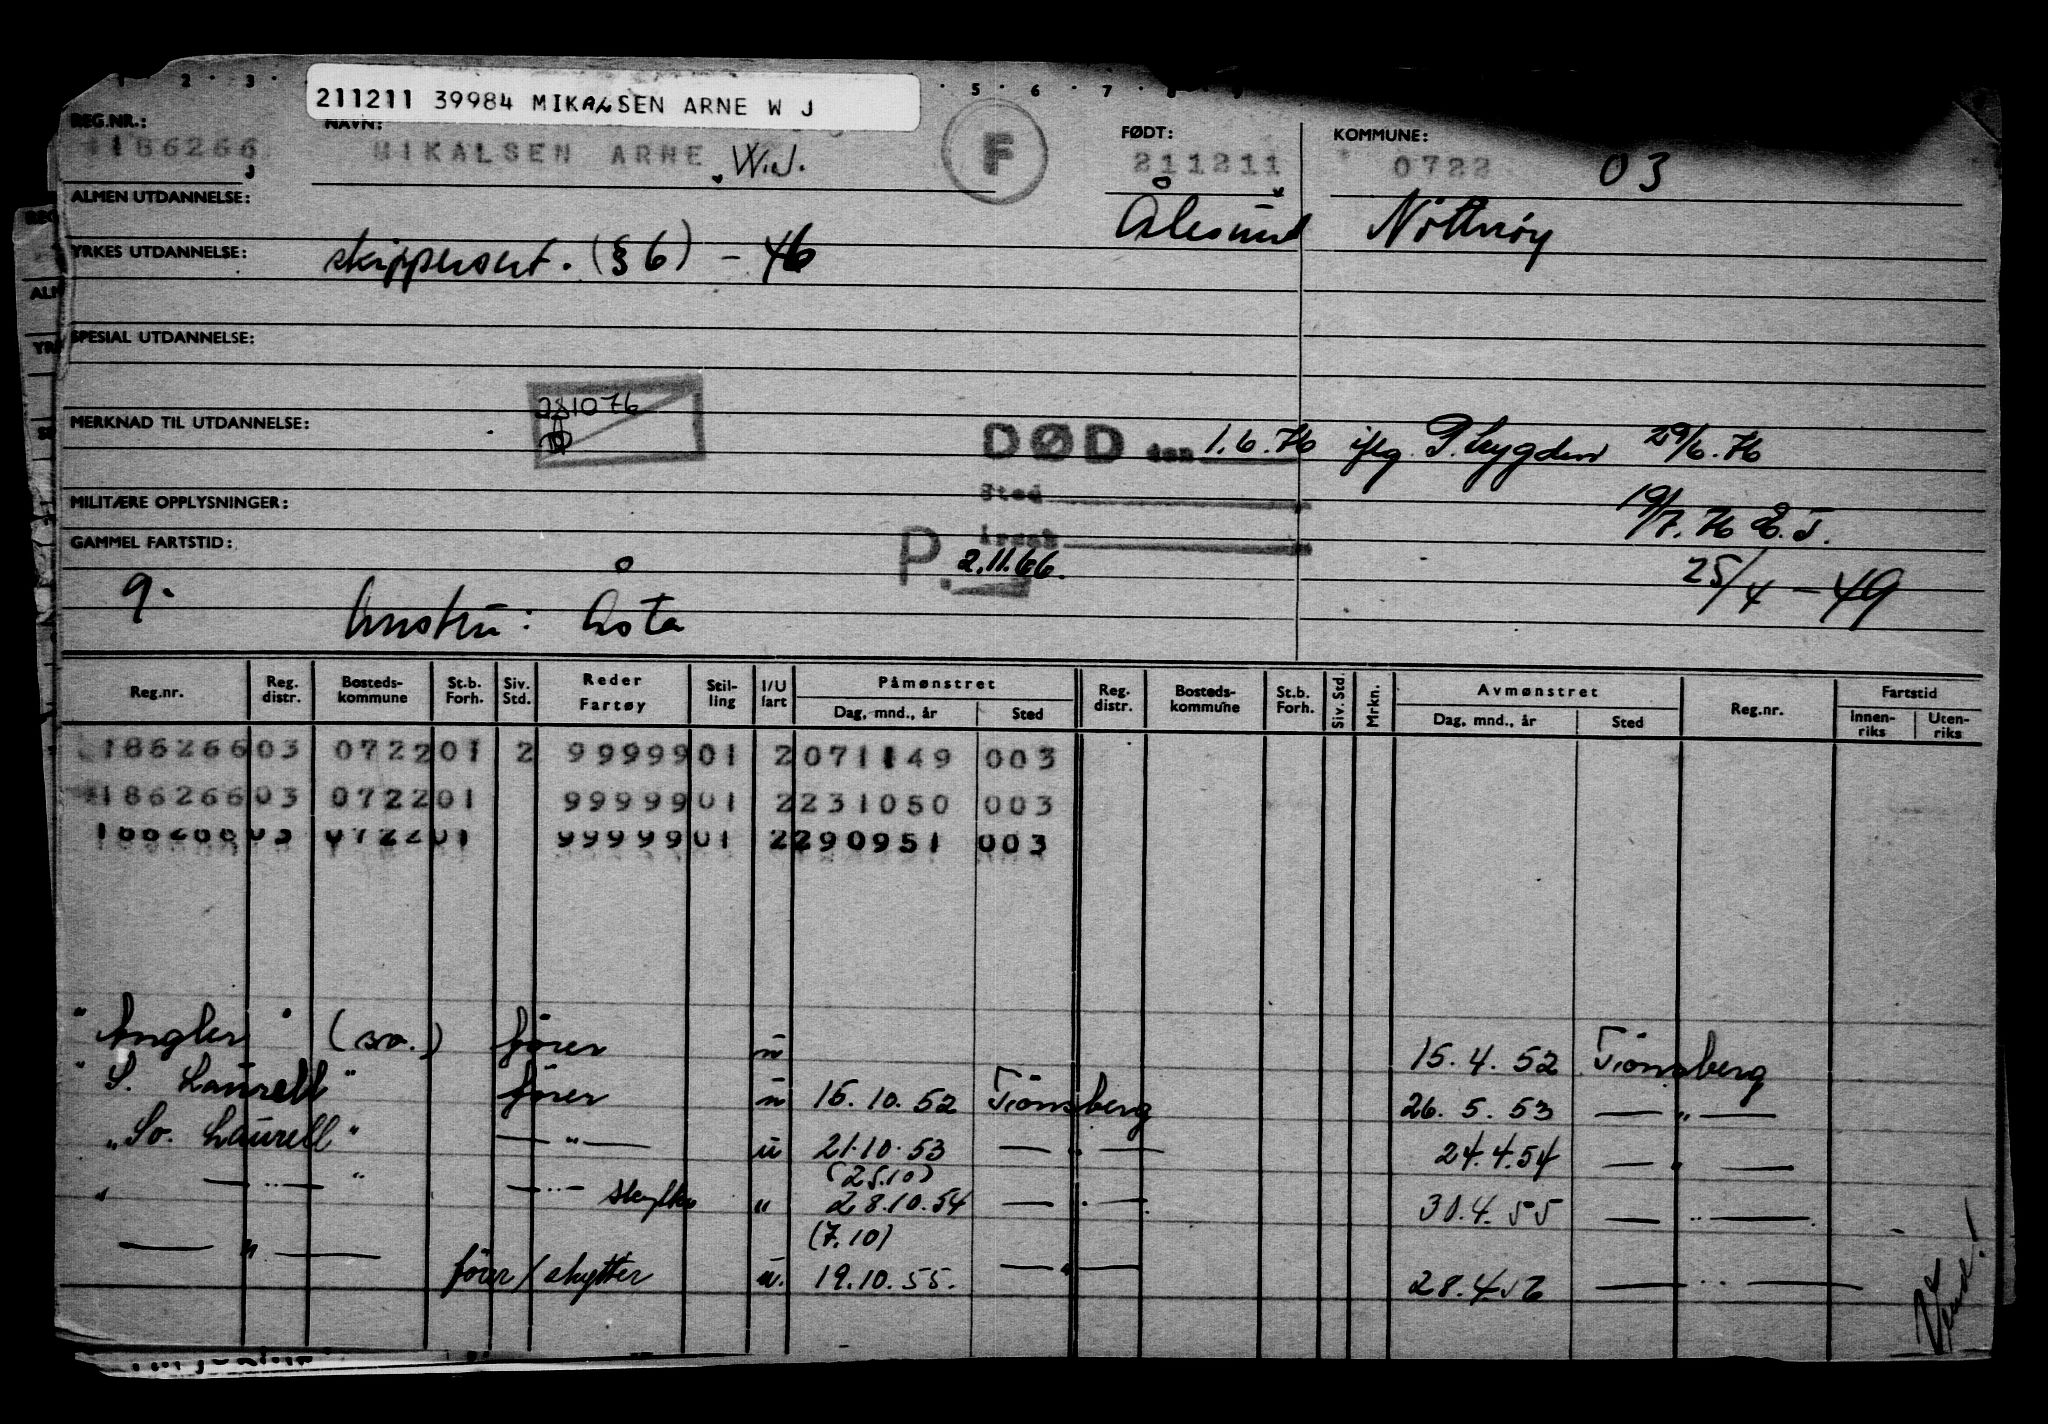 1 2 3 5 6 7 8 9
211211 39984 MIKALSEN ARNE W J
REG.NR.: NAVN: FØDT: KOMMUNE:
186266 MIKALSEN ARNE W.J. F 211211 0722 03
ALMEN UTDANNELSE: Ålesund Nøtterøy
YRKES UTDANNELSE: skippersert. (§ 6) - 46
SPESIAL UTDANNELSE:
281076
MERKNAD TIL UTDANNELSE: DØD den 1.6.76 iflg. P. 29/6.76
MILITÆRE OPPLYSNINGER: Sted 19/7.76
GAMMEL FARTSTID: Årsak
P. 2.11.66. 25/4 - 49
9. Hustru: Åsta
Reg.nr. Reg. distr. Bosteds-kommune St.b. Forh. Siv. Std. Reder Fartøy Stil-ling I/U fart Påmønstret Dag, mnd., år Sted Reg. distr. Bosteds-kommune St.b. Forh. Siv. Std. Mrkn. Avmønstret Dag, mnd., år Sted Reg.nr. Fartstid Innen-riks Uten-riks
186266 03 0722 01 2 99999 01 2 071149 003
186266 03 0722 01 99999 01 2 231050 003
186266 03 0722 01 99999 01 2 290951 003
"Angler" fører u 15.4.52 Tønsberg
"S. Laurell" fører u 16.10.52 Tønsberg 26.5.53 — " —
"So. Laurell" — " — u 21.10.53 — " — 24.4.54 — " —
(25.10)
" — " — " — " — " 28.10.54 — " — 30.4.55 — " —
(7.10)
— " — fører/skytter u. 19.10.55. — " — 28.4.56 — " —
Vend!